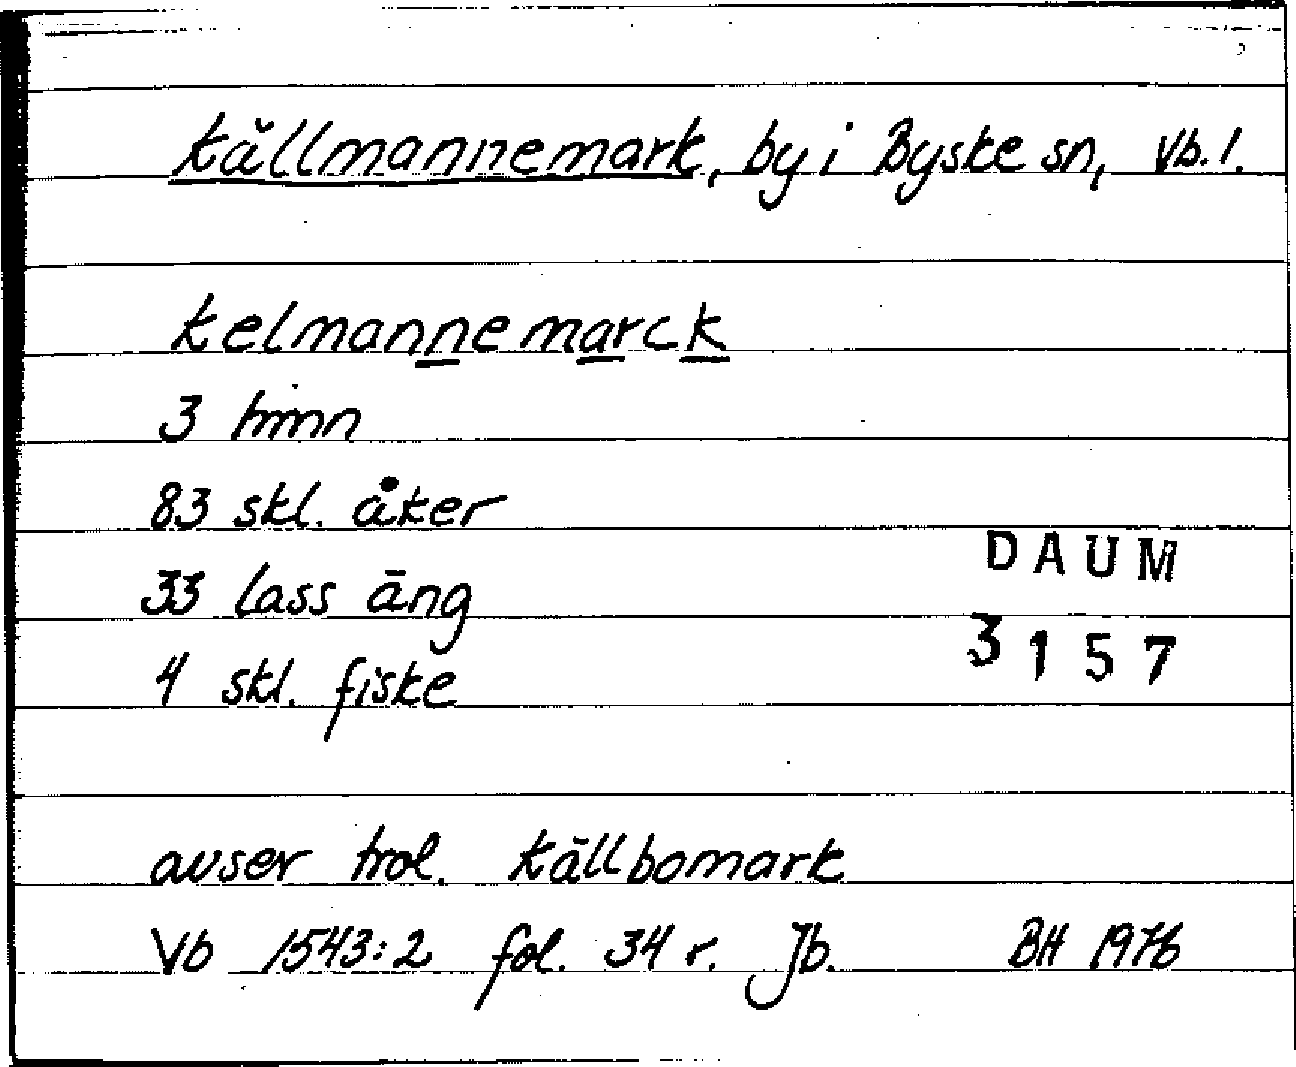 Källmannemark, by i Byske sn, Vb. l.
Kelmannemarck
3 hmn
83 skl. åker
33 lass äng
4 skl. fiske
DAUM
3157
avser trol. Källbomark
Vb 1543:2 fol. 34 r. Jb. BH 1976